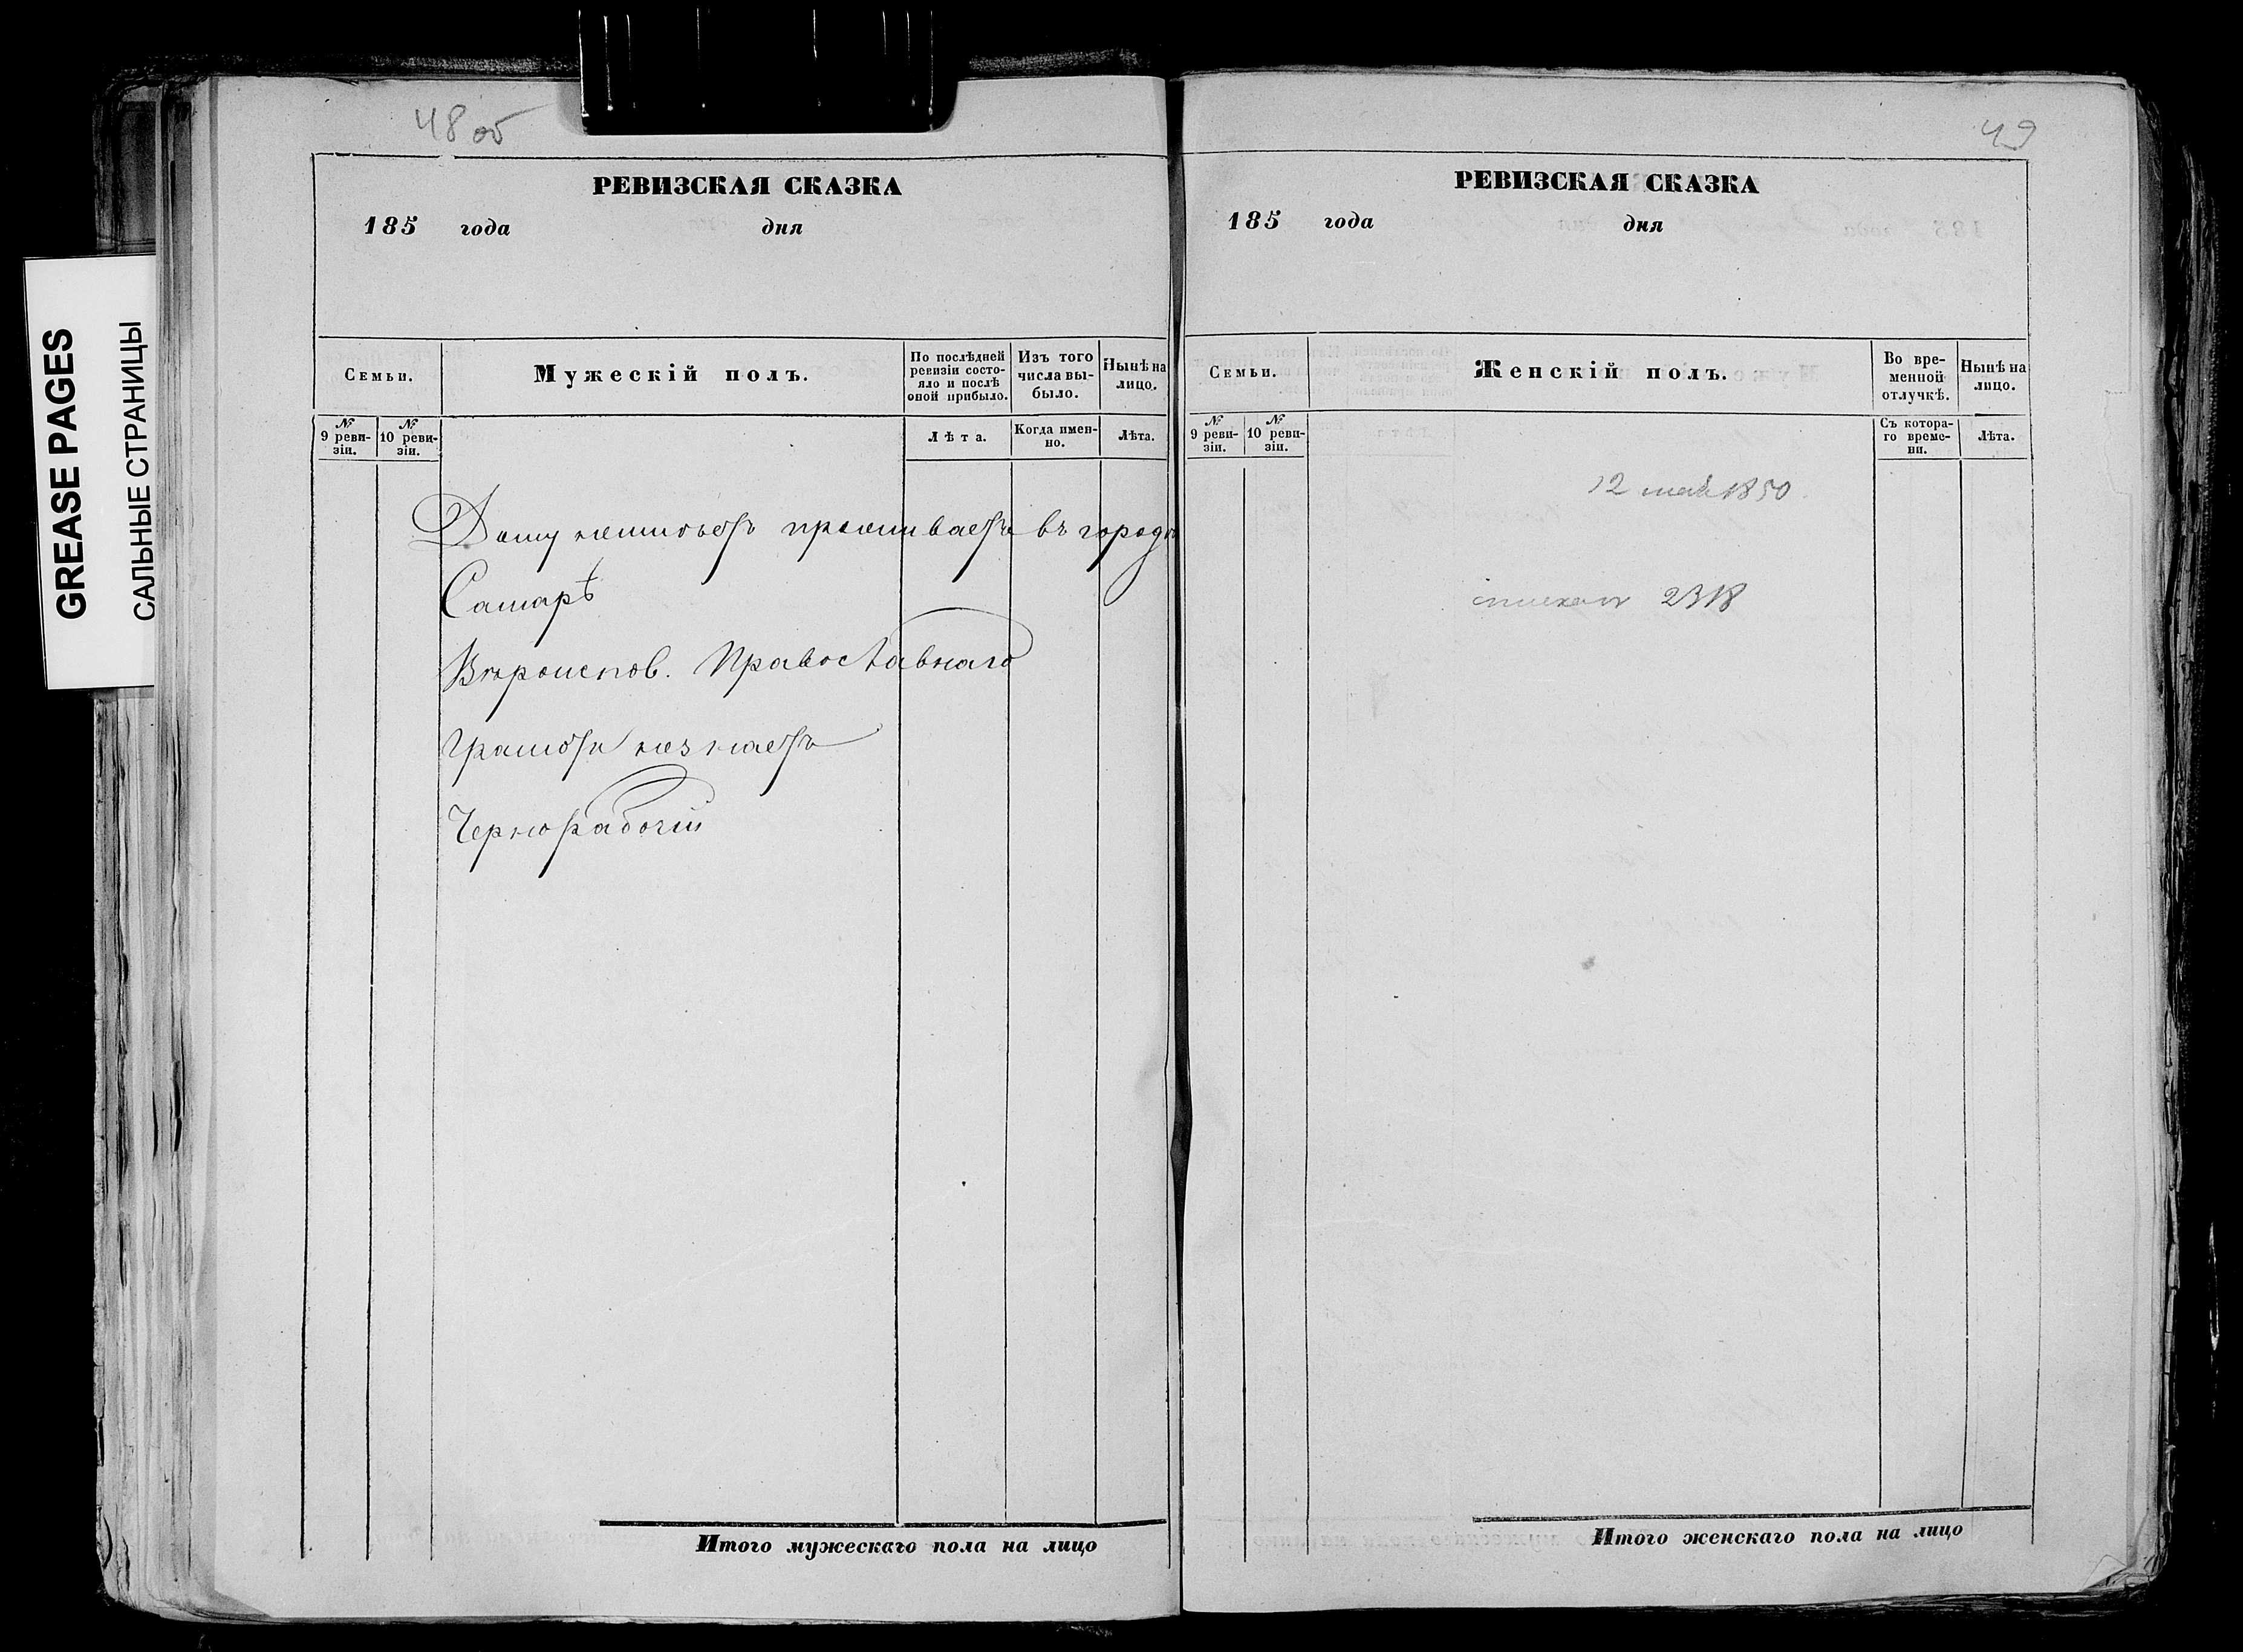 GREASE PAGES
САЛЬНЫЕ СТРАНИЦЫ
48 об
РЕВИЗСКАЯ СКАЗКА
185 года дня
Семьи.
Мужескій полъ.
По послѣдней ревизіи состо-
яло и послѣ
оной прибыло.
Изъ того
числа вы-
было.
Нынѣ на
лицо.
№
9 реви-
зіи.
№
10 реви-
зіи.
Лѣта.
Когда имен-
но.
Лѣта.
Дому неимѣетъ проживаетъ въ городѣ
Самарѣ
Вѣроиспов. Православнаго
Грамоти незнаетъ
Чернорабочій
Итого мужескаго пола на лицо
49
РЕВИЗСКАЯ СКАЗКА
185 года дня
Семьи.
Женскій полъ.
Во вре-
менной
отлучкѣ.
Нынѣ на
лицо.
№
9 реви-
зіи.
№
10 реви-
зіи.
Съ котора-
го време-
ни.
Лѣта.
12 май 1850
2318
Итого женскаго пола на лицо